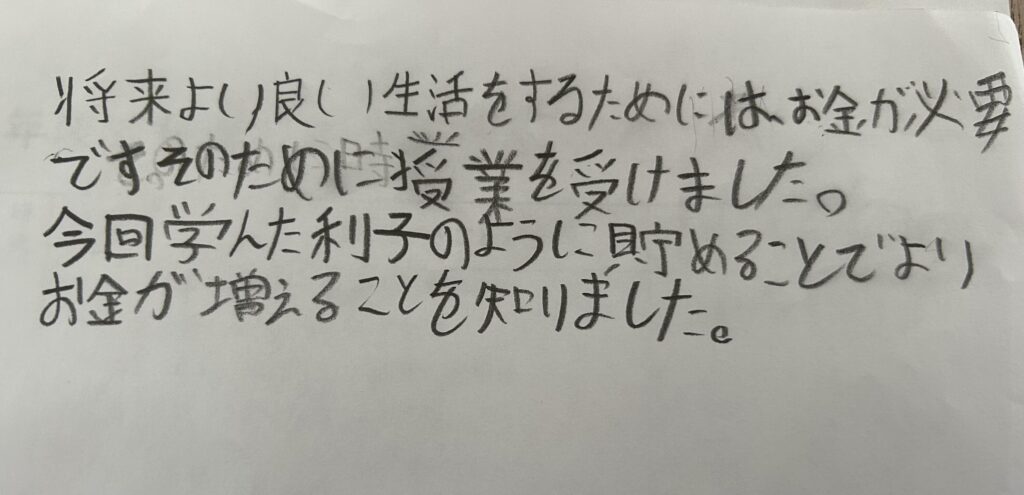 将来より良い生活をするためには、お金が必要
ですそのために授業を受けました。
今回学んた利子のように貯めることでより
お金が増えることを知りました。